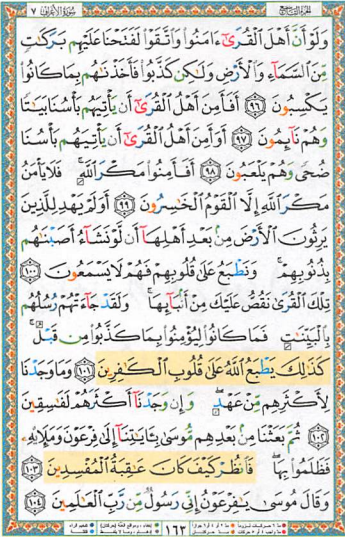 الجزء التاسع سورة الأعراف ٧
وَلَوْ أَنَّ أَهْلَ ٱلْقُرَىٰٓ ءَامَنُوا۟ وَٱتَّقَوْا۟ لَفَتَحْنَا عَلَيْهِم بَرَكَٰتٍ
مِّنَ ٱلسَّمَآءِ وَٱلْأَرْضِ وَلَٰكِن كَذَّبُوا۟ فَأَخَذْنَٰهُم بِمَا كَانُوا۟
يَكْسِبُونَ ٩٦ أَفَأَمِنَ أَهْلُ ٱلْقُرَىٰٓ أَن يَأْتِيَهُم بَأْسُنَا بَيَٰتًا
وَهُمْ نَآئِمُونَ ٩٧ أَوَأَمِنَ أَهْلُ ٱلْقُرَىٰٓ أَن يَأْتِيَهُم بَأْسُنَا
ضُحًى وَهُمْ يَلْعَبُونَ ٩٨ أَفَأَمِنُوا۟ مَكْرَ ٱللَّهِ ۚ فَلَا يَأْمَنُ
مَكْرَ ٱللَّهِ إِلَّا ٱلْقَوْمُ ٱلْخَٰسِرُونَ ٩٩ أَوَلَمْ يَهْدِ لِلَّذِينَ
يَرِثُونَ ٱلْأَرْضَ مِنۢ بَعْدِ أَهْلِهَآ أَن لَّوْ نَشَآءُ أَصَبْنَٰهُم
بِذُنُوبِهِمْ ۚ وَنَطْبَعُ عَلَىٰ قُلُوبِهِمْ فَهُمْ لَا يَسْمَعُونَ ١٠٠
تِلْكَ ٱلْقُرَىٰ نَقُصُّ عَلَيْكَ مِنْ أَنۢبَآئِهَا ۚ وَلَقَدْ جَآءَتْهُمْ رُسُلُهُم
بِٱلْبَيِّنَٰتِ فَمَا كَانُوا۟ لِيُؤْمِنُوا۟ بِمَا كَذَّبُوا۟ مِن قَبْلُ ۚ
كَذَٰلِكَ يَطْبَعُ ٱللَّهُ عَلَىٰ قُلُوبِ ٱلْكَٰفِرِينَ ١٠١ وَمَا وَجَدْنَا
لِأَكْثَرِهِم مِّنْ عَهْدٍ ۖ وَإِن وَجَدْنَآ أَكْثَرَهُمْ لَفَٰسِقِينَ
١٠٢ ثُمَّ بَعَثْنَا مِنۢ بَعْدِهِم مُّوسَىٰ بِـَٔايَٰتِنَآ إِلَىٰ فِرْعَوْنَ وَمَلَإِي۟هِۦ
فَظَلَمُوا۟ بِهَا ۖ فَٱنظُرْ كَيْفَ كَانَ عَٰقِبَةُ ٱلْمُفْسِدِينَ ١٠٣
وَقَالَ مُوسَىٰ يَٰفِرْعَوْنُ إِنِّى رَسُولٌ مِّن رَّبِّ ٱلْعَٰلَمِينَ ١٠٤
١٦٣